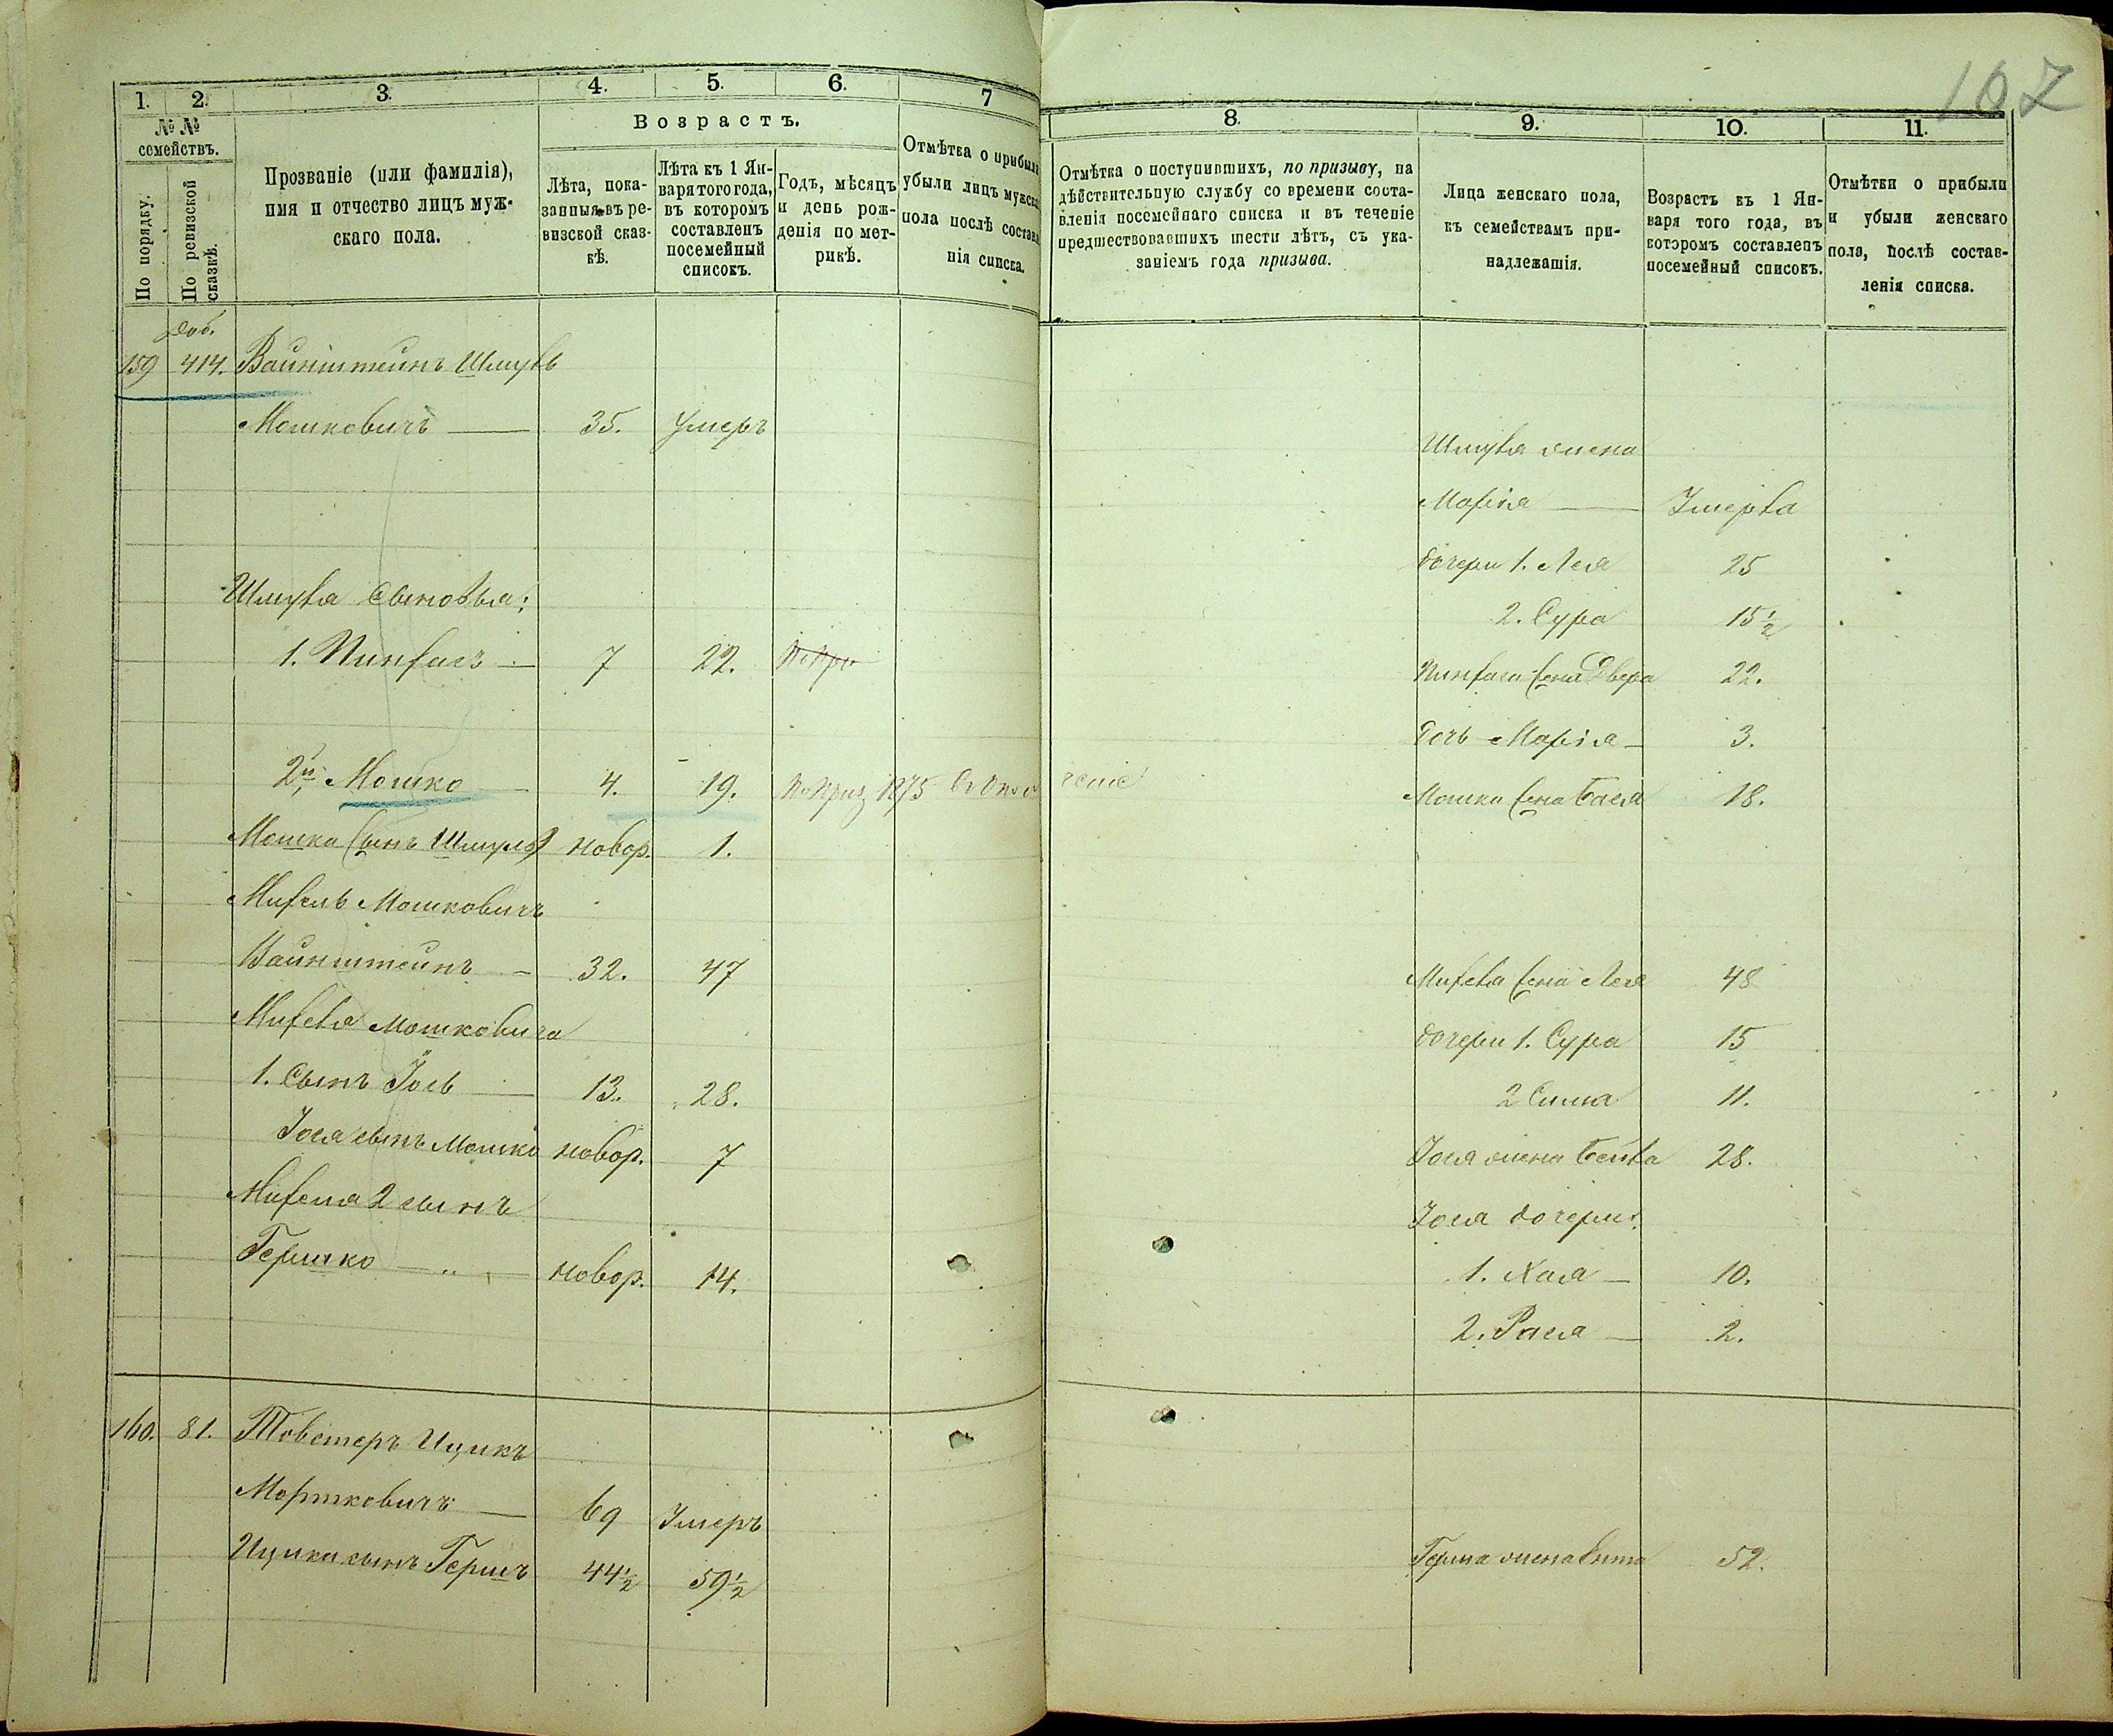 107
1. 2. 3. 4. 5. 6. 7
№ № семействъ.
По порядку.
По ревизской сказкѣ.
Прозваніе (или фамилія),
имя и отчество лицъ муж-
скаго пола.
Возрастъ.
Лѣта, пока-
занныя въ ре-
визской сказ-
кѣ.
Лѣта къ 1 Ян-
варя того года,
въ которомъ
составленъ
посемейный
списокъ.
Годъ, мѣсяцъ
и день рож-
денія по мет-
рикѣ.
Отмѣтка о прибыли
убыли лицъ мужска
пола послѣ составл
нія списка.
8. 9. 10. 11.
Отмѣтка о поступившихъ, по призыву, на
дѣйствительную службу со времени соста-
вленія посемейнаго списка и въ теченіе
предшествовавшихъ шести лѣтъ, съ ука-
заніемъ года призыва.
Лица женскаго пола,
къ семействамъ при-
надлежащія.
Возрастъ къ 1 Ян-
варя того года, въ
которомъ составленъ
посемейный списокъ.
Отмѣтки о прибыли
и убыли женскаго
пола, послѣ состав-
ленія списка.
доб.
159 414. Вайнштейнъ Шмуль
Мошковичъ — 35. Умеръ
Шмуля жена
Маріял — Умерла
дочери 1. Лея 25
Шмуля сыновья:
2. Сура 15½
1. Пинхасъ — 7 22.
Пинхаса жена Двера 22.
дочь Маріял — 3.
2й, Мошко — 4. 19. По приз 1875 въ ополчение
Мошки жена Бася 18.
Мошка сынъ Шмуль новор. 1.
Михель Мошковичъ
Вайнштейнъ — 32. 47
Михеля жена Лея 48
Михеля Мошковича
дочери 1. Сура 15
1. Сынъ Іось — 13. 28.
2 Сима 11.
Іося сынъ Мошко новор. 7
Іося жена Бейла 28.
Михеля 2 сынъ
Іося дочери:
Гершко — новор. 14.
1. Хая — 10.
2. Рася — 2.
160. 81. Товстеръ Ицикъ
Мортковичъ — 69 Умеръ
Ицика сынъ Гершъ 44½ 59½
Герша жена 52.